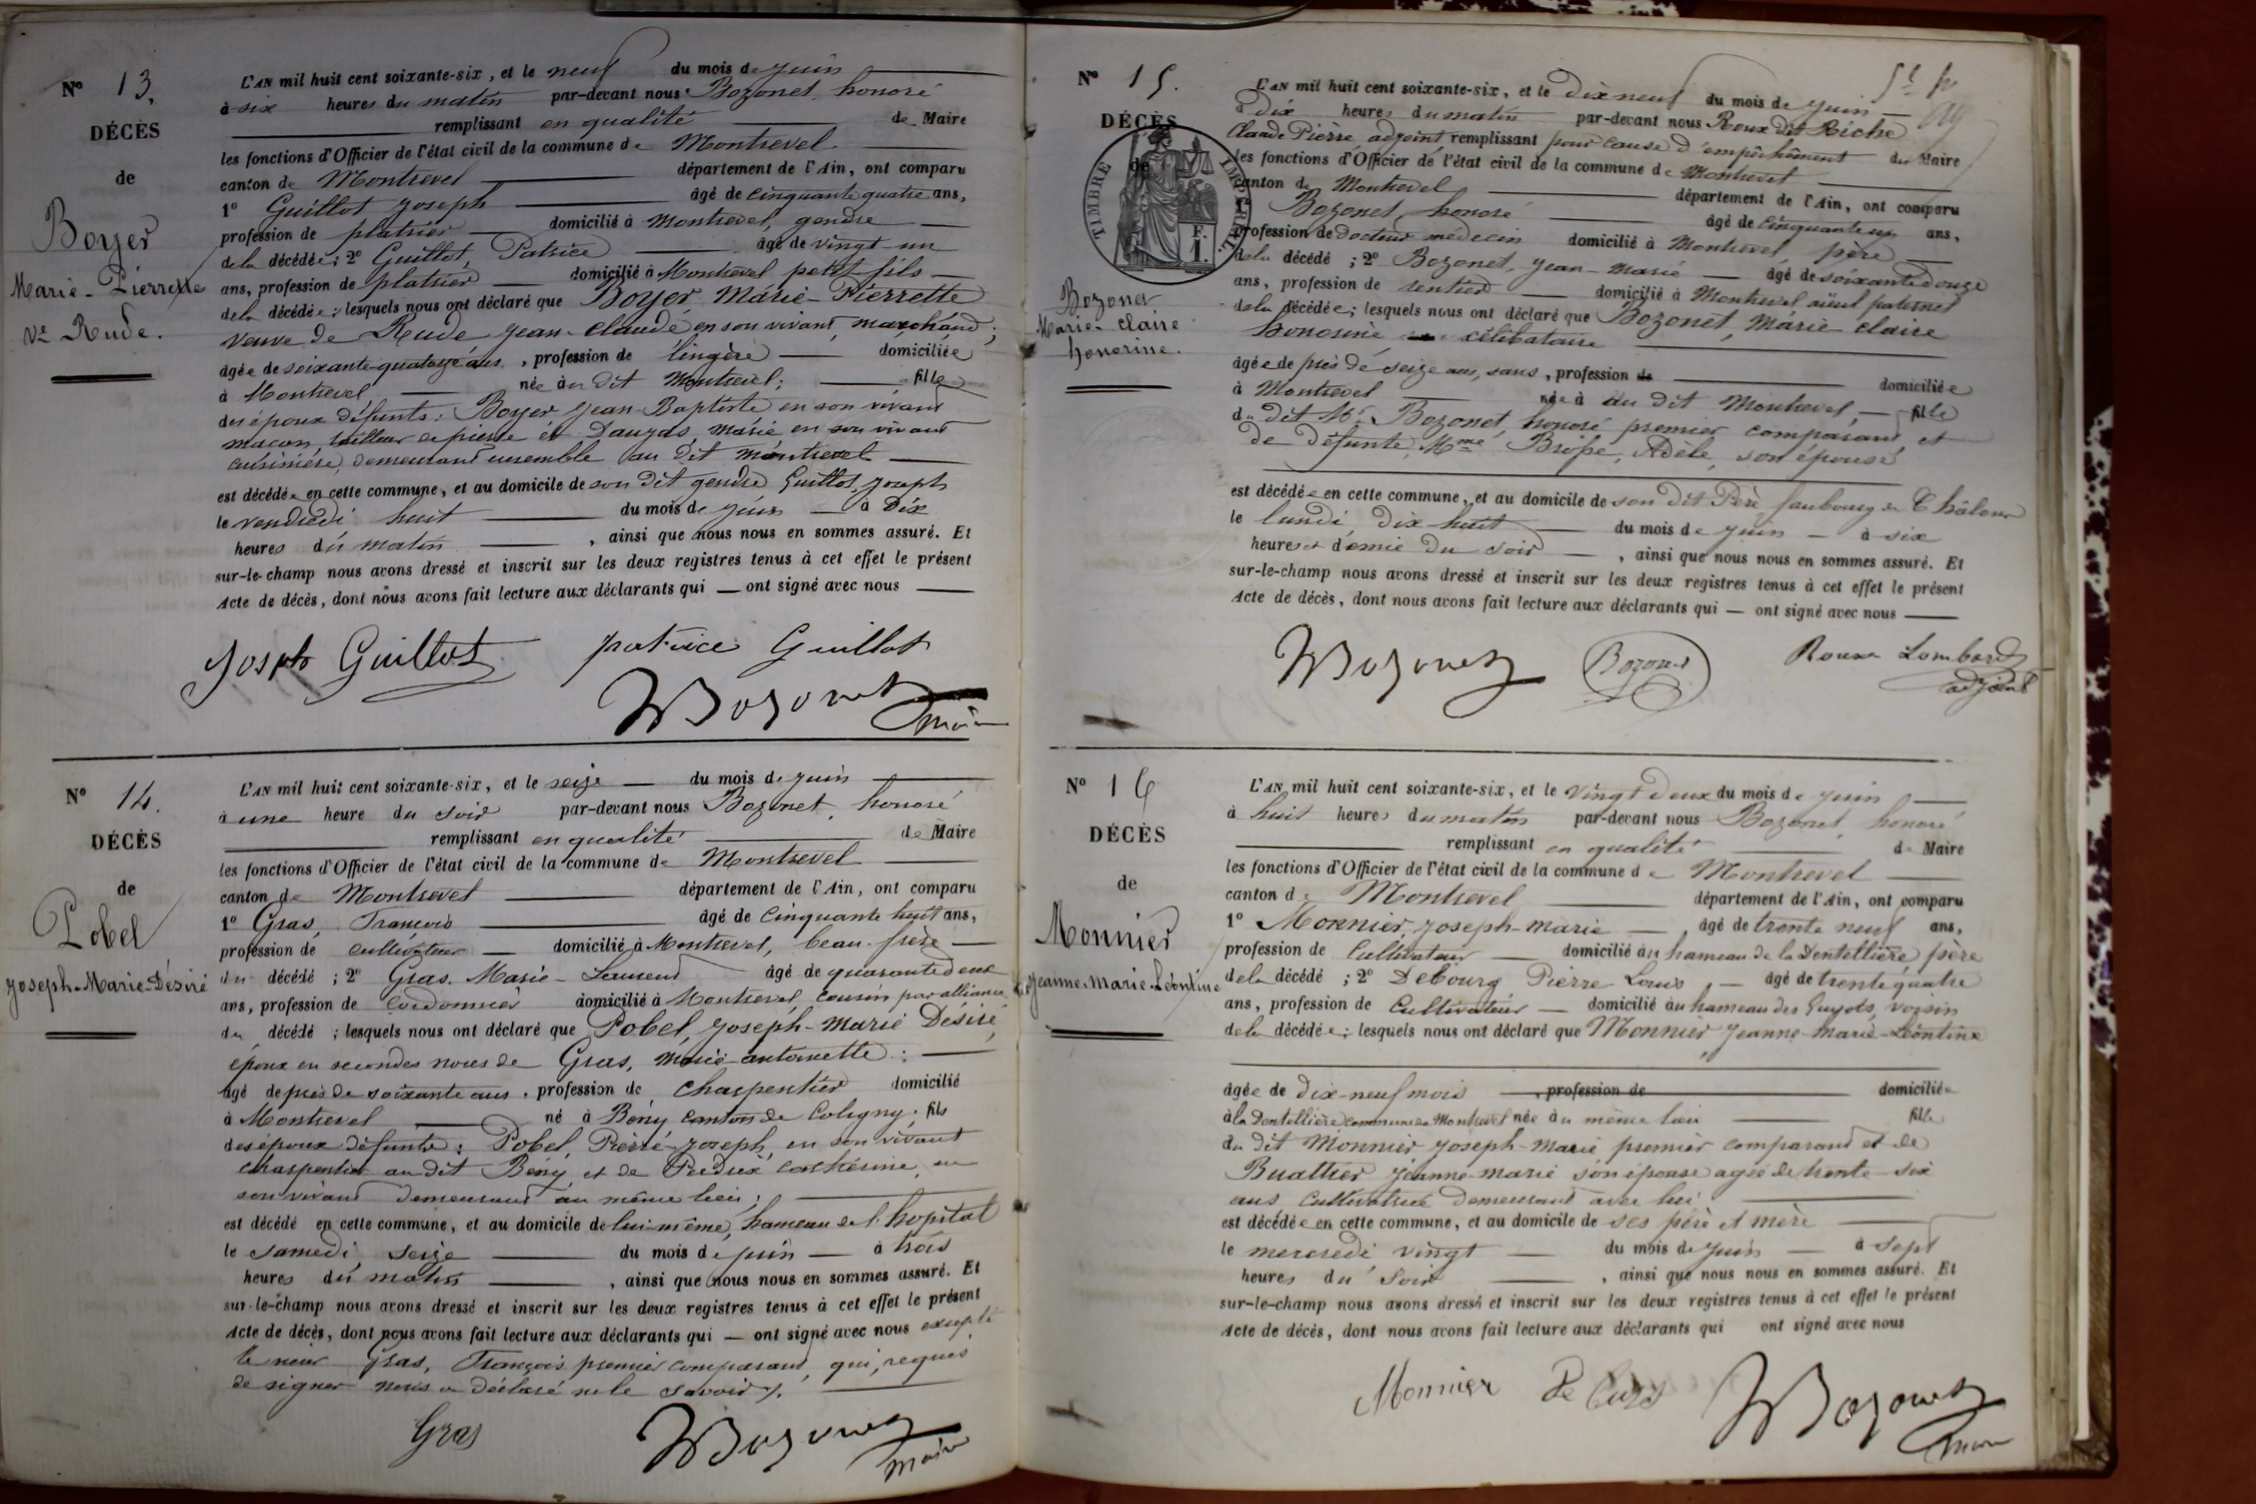 N° 13.
DÉCÈS
de
Boyer
Marie-Pierrette
Ve Rude.
L'AN mil huit cent soixante-six, et le neuf du mois de juin
à six heures du matin par-devant nous Bozonet, honoré
remplissant en qualité de Maire
les fonctions d'Officier de l'état civil de la commune de Montrevel
canton de Montrevel département de l'Ain, ont comparu
1° Guillot Joseph âgé de cinquante quatre ans,
profession de platrier domicilié à Montrevel, gendre
de la décédée; 2° Guillot, Patrice âgé de vingt-un
ans, profession de platrier domicilié à Montrevel petit fils
de la décédée; lesquels nous ont déclaré que Boyer Marie-Pierrette
veuve de Rude Jean-Claude en son vivant marchand;
âgée de soixante-quatorze ans, profession de lingère domiciliée
à Montrevel née au dit Montrevel; fille
des époux défunts: Boyer Jean-Baptiste en son vivant
maçon, tailleur de pierre et Dauzas, Marie en son vivant
cuisinière, demeurant ensemble au dit Montrevel
est décédée en cette commune, et au domicile de son dit gendre Guillot, Joseph
le vendredi huit du mois de juin à Dix
heures du matin, ainsi que nous nous en sommes assuré. Et
sur-le-champ nous avons dressé et inscrit sur les deux registres tenus à cet effet le présent
Acte de décès, dont nous avons fait lecture aux déclarants qui ont signé avec nous
Joseph Guillot patrice Guillot
Bozonet
maire
N° 14.
DÉCÈS
de
Pobel
Joseph-Marie-Désiré
L'AN mil huit cent soixante-six, et le seize du mois de juin
à une heure du soir par-devant nous Bozonet, honoré
remplissant en qualité de Maire
les fonctions d'Officier de l'état civil de la commune de Montrevel
canton de Montrevel département de l'Ain, ont comparu
1° Gras, François âgé de cinquante huit ans,
profession de cultivateur domicilié à Montrevel, beau-frère
du décédé; 2° Gras, Marie-Laurent âgé de quarante deux
ans, profession de Cordonnier domicilié à Montrevel, cousin par alliance
du décédé; lesquels nous ont déclaré que Pobel, Joseph-Marie Désiré,
époux en secondes noces de Gras, Marie-antoinette:
âgé de près de soixante ans, profession de charpentier domicilié
à Montrevel né à Bény canton de Coligny, fils
des époux défunts: Pobel, Pierre-Joseph, en son vivant
charpentier au dit Bény, et de Perdrix Catherine, en
son vivant demeurant au même lieu;
est décédé en cette commune, et au domicile de lui-même, hameau de l'hopital
le samedi seize du mois de juin à trois
heures du matin, ainsi que nous nous en sommes assuré. Et
sur-le-champ nous avons dressé et inscrit sur les deux registres tenus à cet effet le présent
Acte de décès, dont nous avons fait lecture aux déclarants qui ont signé avec nous excepté
le sieur Gras, François premier comparant, qui, requis
de signer nous a déclaré ne le savoir.
Gras Bozonet
maire
N° 15.
DÉCÈS
de
TIMBRE IMPÉRIAL
Bozonet
Marie-Claire
honorine.
L'AN mil huit cent soixante-six, et le Dix neuf du mois de juin
à dix heures du matin par-devant nous Roux dit Riche
Claude Pierre, adjoint remplissant pour cause d'empêchement du Maire
les fonctions d'Officier de l'état civil de la commune de Montrevel
canton de Montrevel département de l'Ain, ont comparu
1° Bozonet, honoré âgé de cinquante un ans,
profession de docteur médecin domicilié à Montrevel, père
de la décédé; 2° Bozonet, Jean-Marie âgé de soixante douze
ans, profession de rentier domicilié à Montrevel aïeul paternel
de la décédée; lesquels nous ont déclaré que Bozonet, Marie Claire
honorine célibataire
âgée de près de seize ans, sans, profession de domiciliée
à Montrevel née à au dit Montrevel, fille
du dit Mr Bozonet, honoré premier comparant, et
de défunte, Mme Adèle, son épouse
est décédée en cette commune, et au domicile de son dit Père faubourg de Châlons
le lundi, dix huit du mois de juin à six
heures et demie du soir, ainsi que nous nous en sommes assuré. Et
sur-le-champ nous avons dressé et inscrit sur les deux registres tenus à cet effet le présent
Acte de décès, dont nous avons fait lecture aux déclarants qui ont signé avec nous
Bozonet Bozonet Roux Lombard
adjoint
N° 16
DÉCÈS
de
Monnier
Jeanne-Marie-Léontine
L'AN mil huit cent soixante-six, et le vingt deux du mois de juin
à huit heures du matin par-devant nous Bozonet, honoré
remplissant en qualité de Maire
les fonctions d'Officier de l'état civil de la commune de Montrevel
canton de Montrevel département de l'Ain, ont comparu
1° Monnier, Joseph-marie âgé de trente neuf ans,
profession de Cultivateur domicilié au hameau de la Dentellière père
de la décédé; 2° Debourg Pierre Louis, âgé de trente quatre
ans, profession de Cultivateur domicilié au hameau des Guyots, voisin
de la décédée; lesquels nous ont déclaré que Monnier Jeanne-Marie-Léontine
âgée de dix-neuf mois, profession de domiciliée
à la Dentellière commune de Montrevel née au même lieu fille
du dit Monnier Joseph-Marie premier comparant et de
Buattier Jeanne-Marie son épouse agée de trente six
ans Cultivatrice demeurant avec lui
est décédée en cette commune, et au domicile de ses père et mère
le mercredi vingt du mois de juin à sept
heures du Soir, ainsi que nous nous en sommes assuré. Et
sur-le-champ nous avons dressé et inscrit sur les deux registres tenus à cet effet le présent
Acte de décès, dont nous avons fait lecture aux déclarants qui ont signé avec nous
Monnier Bozonet
maire